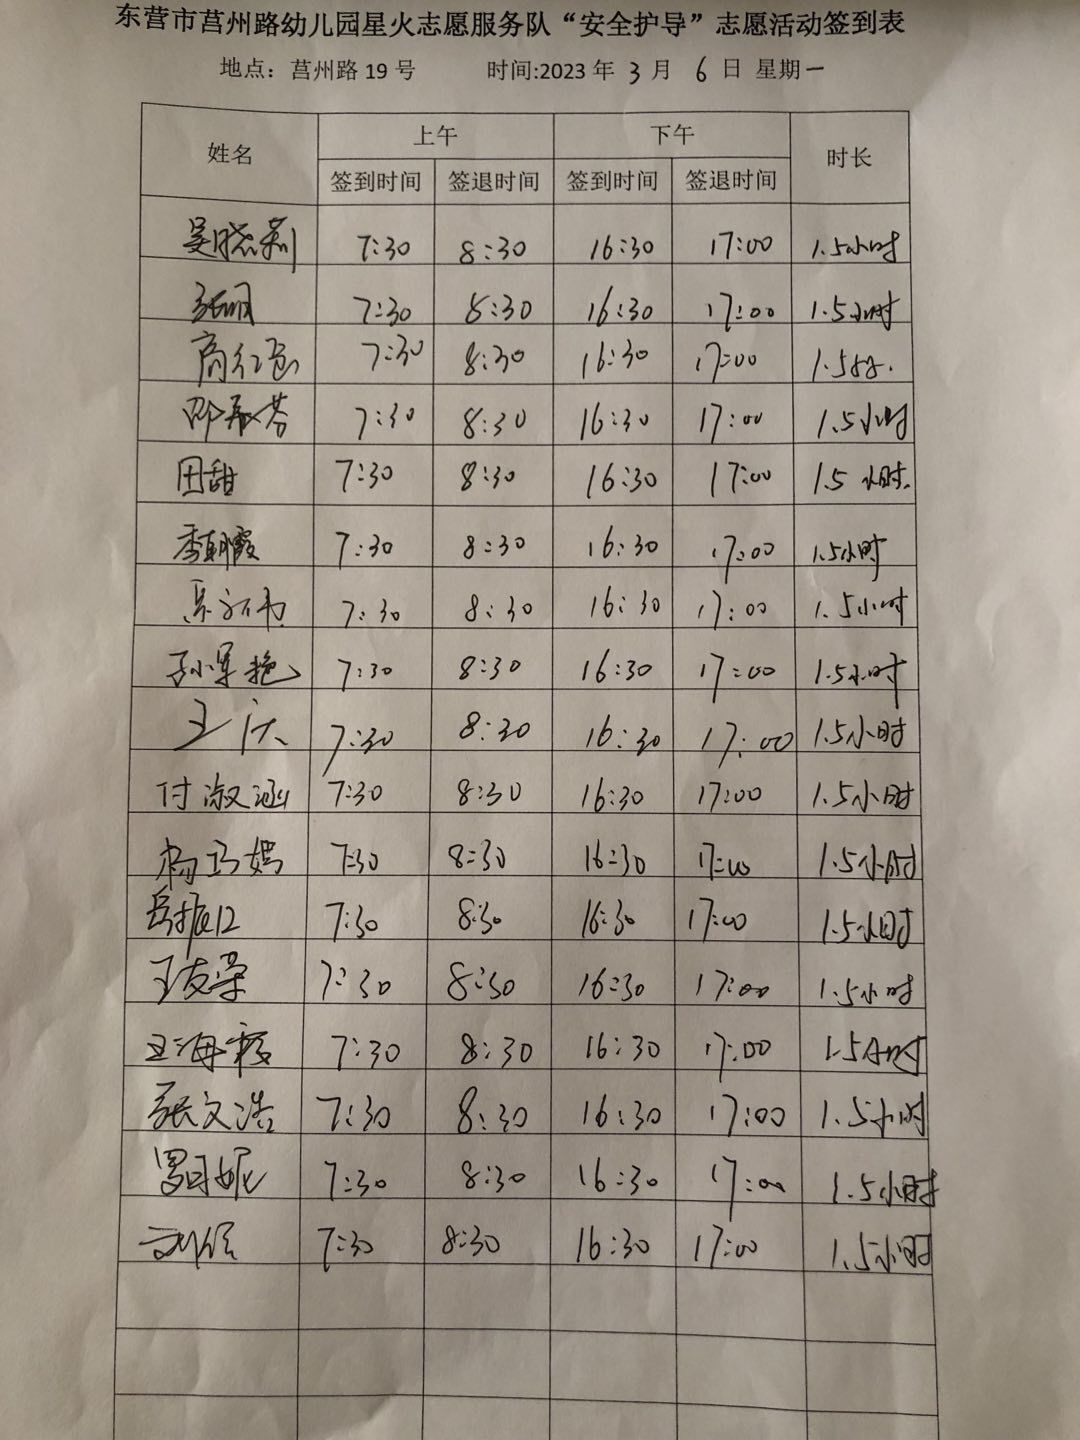 东营市莒州路幼儿园星火志愿服务队“安全护导”志愿活动签到表
地点：莒州路19号 时间:2023年3月6日 星期一
姓名 上午 下午 时长
签到时间 签退时间 签到时间 签退时间
吴晓莉 7:30 8:30 16:30 17:00 1.5小时
7:30 8:30 16:30 17:00 1.5小时
商红色 7:30 8:30 16:30 17:00 1.5
7:30 8:30 16:30 17:00 1.5小时
田甜 7:30 8:30 16:30 17:00 1.5小时.
季朝霞 7:30 8:30 16:30 17:00 1.5小时
7:30 8:30 16:30 17:00 1.5小时
孙军艳 7:30 8:30 16:30 17:00 1.5小时
王 7:30 8:30 16:30 17:00 1.5小时
付淑涵 7:30 8:30 16:30 17:00 1.5小时
杨巧嫣 7:30 8:30 16:30 17:00 1.5小时
岳振江 7:30 8:30 16:30 17:00 1.5小时
王友荣 7:30 8:30 16:30 17:00 1.5小时
王海霞 7:30 8:30 16:30 17:00 1.5小时
张文浩 7:30 8:30 16:30 17:00 1.5小时
7:30 8:30 16:30 17:00 1.5小时
7:30 8:30 16:30 17:00 1.5小时